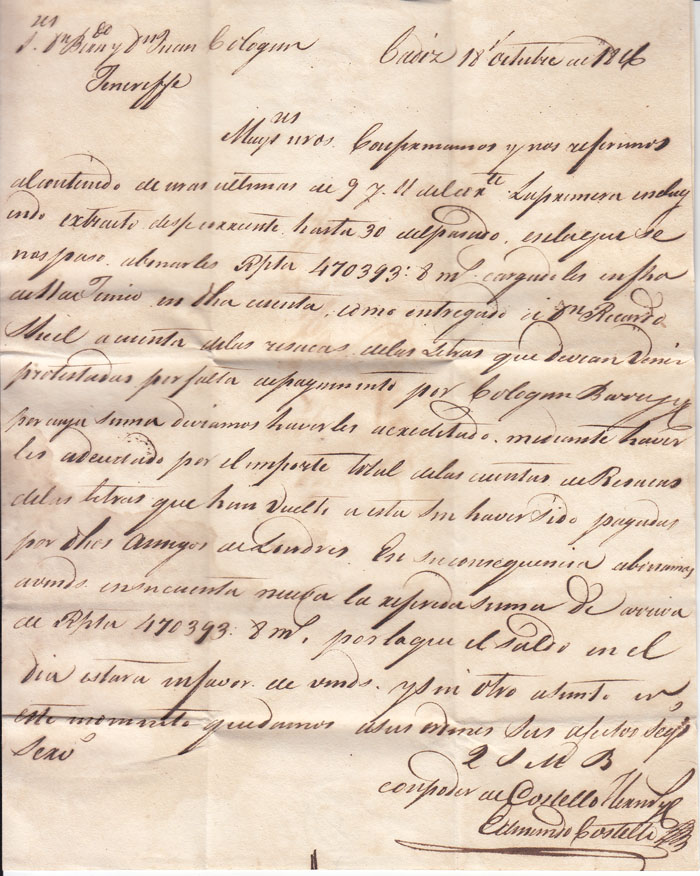 S.res Dn Bern.do y Dn Juan Cologan
Cadiz 18 octubre de 1816
Teneriffe
Muy s.res nros. Confirmamos y nos referimos
al contenido de nras ultimas de 9 y 11 del corr.te La primera incluy
endo extracto de su corriente hasta 30 del pasado, en la que se
nos paso abonarles Rpta 470393: 8 ms. cargadoles en fha
de 11 de Junio en dha cuenta, como entregado a Dn Ricardo
a cuenta de las resacas de las Letras que devian venir
protestadas por falta de pagamento por Cologan
por cuya suma deviamos haverles acreditado, mediante haver
les adeudado por el importe total de las cuentas de Resacas
de las letras que han vuelto a esta sin haver sido pagadas
por dhos Amigos de Londres. En su consequencia abonamos
a vmds. en su cuenta nueva la referida suma de arriva
de Rpta 470393: 8 ms, por la que el saldo en el
dia estara in favor de vmds. y sin otro asunto en
este momento quedamos a sus ordenes sus afectos seg.s
Serv.s
Q S M B
con poder de Costello Herm.s y C
Edmundo Costello